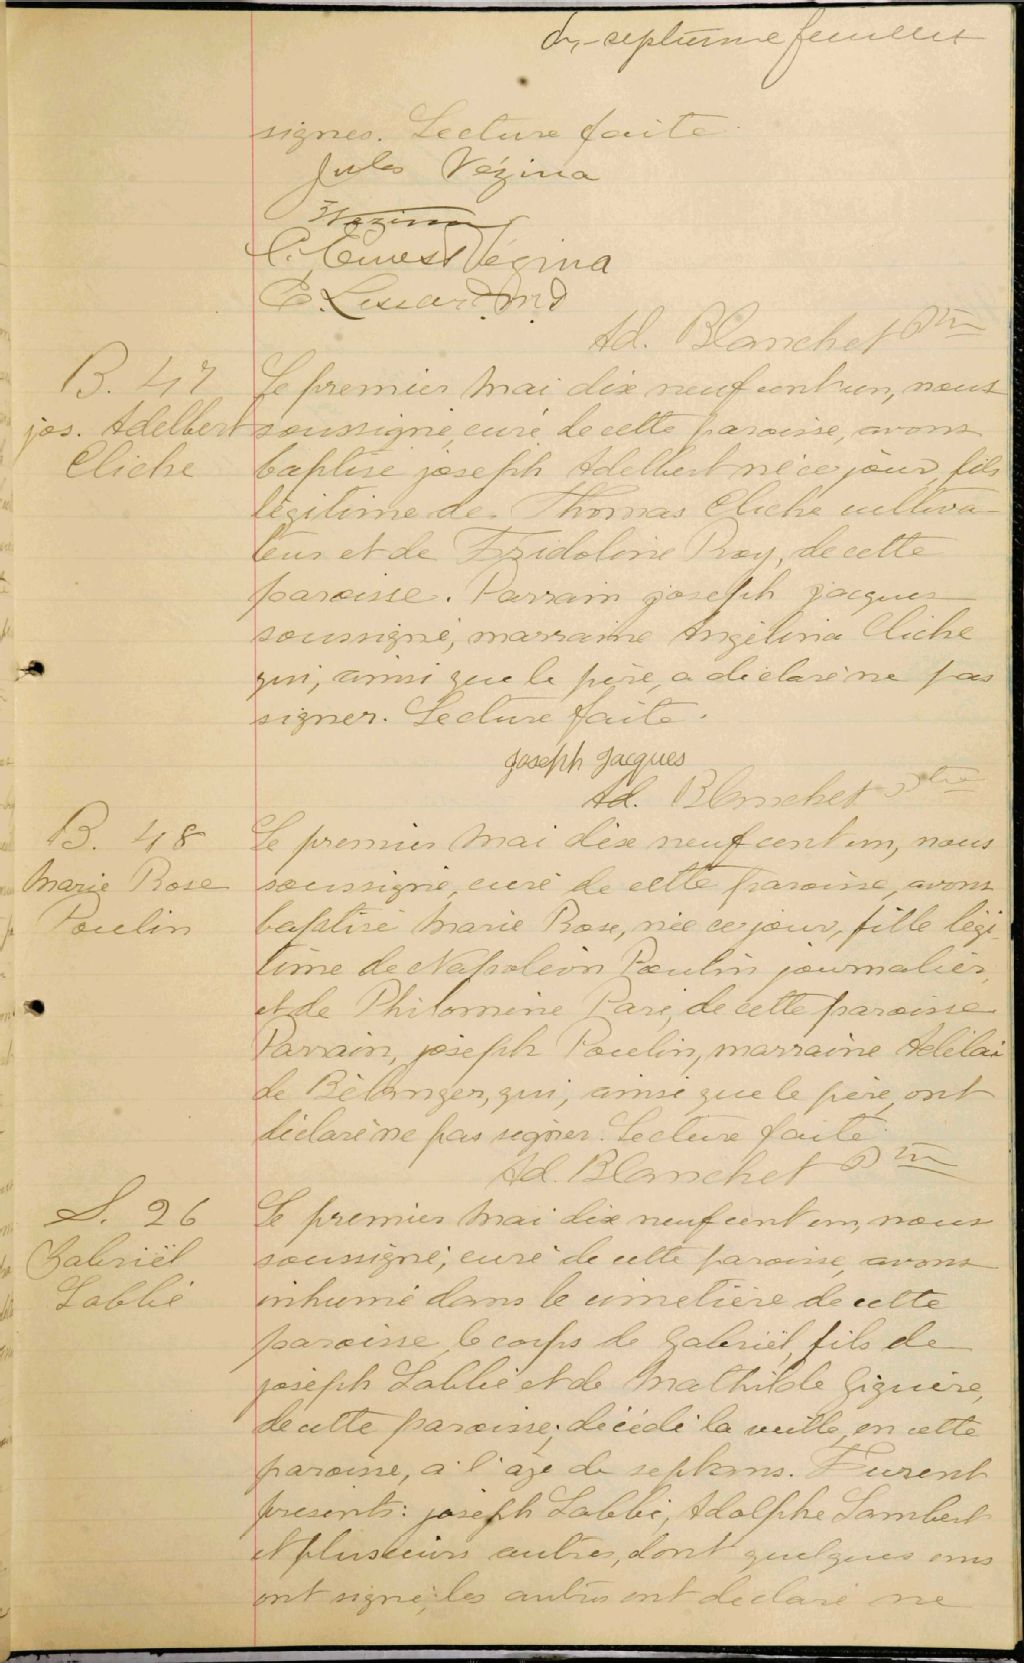 dix-septième feuillet
signer. Lecture faite.
Jules Vézina
Vézina
C. Ernest Vézina
Ad. Blanchet Ptre
B. 47
jos. Adelbert
Cliche
Le premier Mai dix neuf cent un, nous
soussigné, curé de cette paroisse, avons
baptisé joseph Adelbert né ce jour, fils
légitime de Thomas Cliche cultiva-
teur et de Fridoline Roy, de cette
paroisse. Parrain joseph jacques
soussigné, marraine Angélina Cliche
qui, ainsi que le père, a déclaré ne pas
signer. Lecture faite.
joseph jacques
Ad. Blanchet Ptre
B. 48
Marie Rose
Poulin
Le premier Mai dix neuf cent un, nous
soussigné, curé de cette paroisse, avons
baptisé Marie Rose, née ce jour, fille légi-
time de Napoléon Poulin journalier,
et de Philomène Paré, de cette paroisse
Parrain, joseph Poulin, marraine Adélaï
de Bélanger, qui, ainsi que le père, ont
déclaré ne pas signer. Lecture faite.
Ad. Blanchet Ptre
S. 26
Gabriël
Labbé
Le premier Mai dix neuf cent un, nous
soussigné, curé de cette paroisse, avons
inhumé dans le cimetière de cette
paroisse, le corps de Gabriël, fils de
joseph Labbé et de Mathilde Giguère,
de cette paroisse; décédé la veille, en cette
paroisse, à l'age de sept ans. Furent
présents: joseph Labbé, Adolphe Lambert
et plusieurs autres, dont quelques uns
ont signé, les autres ont déclaré ne